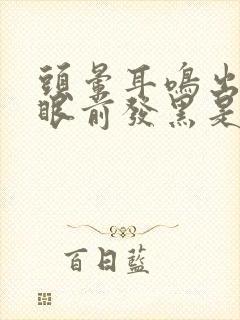 頭暈耳鳴出
眼前發黑是
百日藍